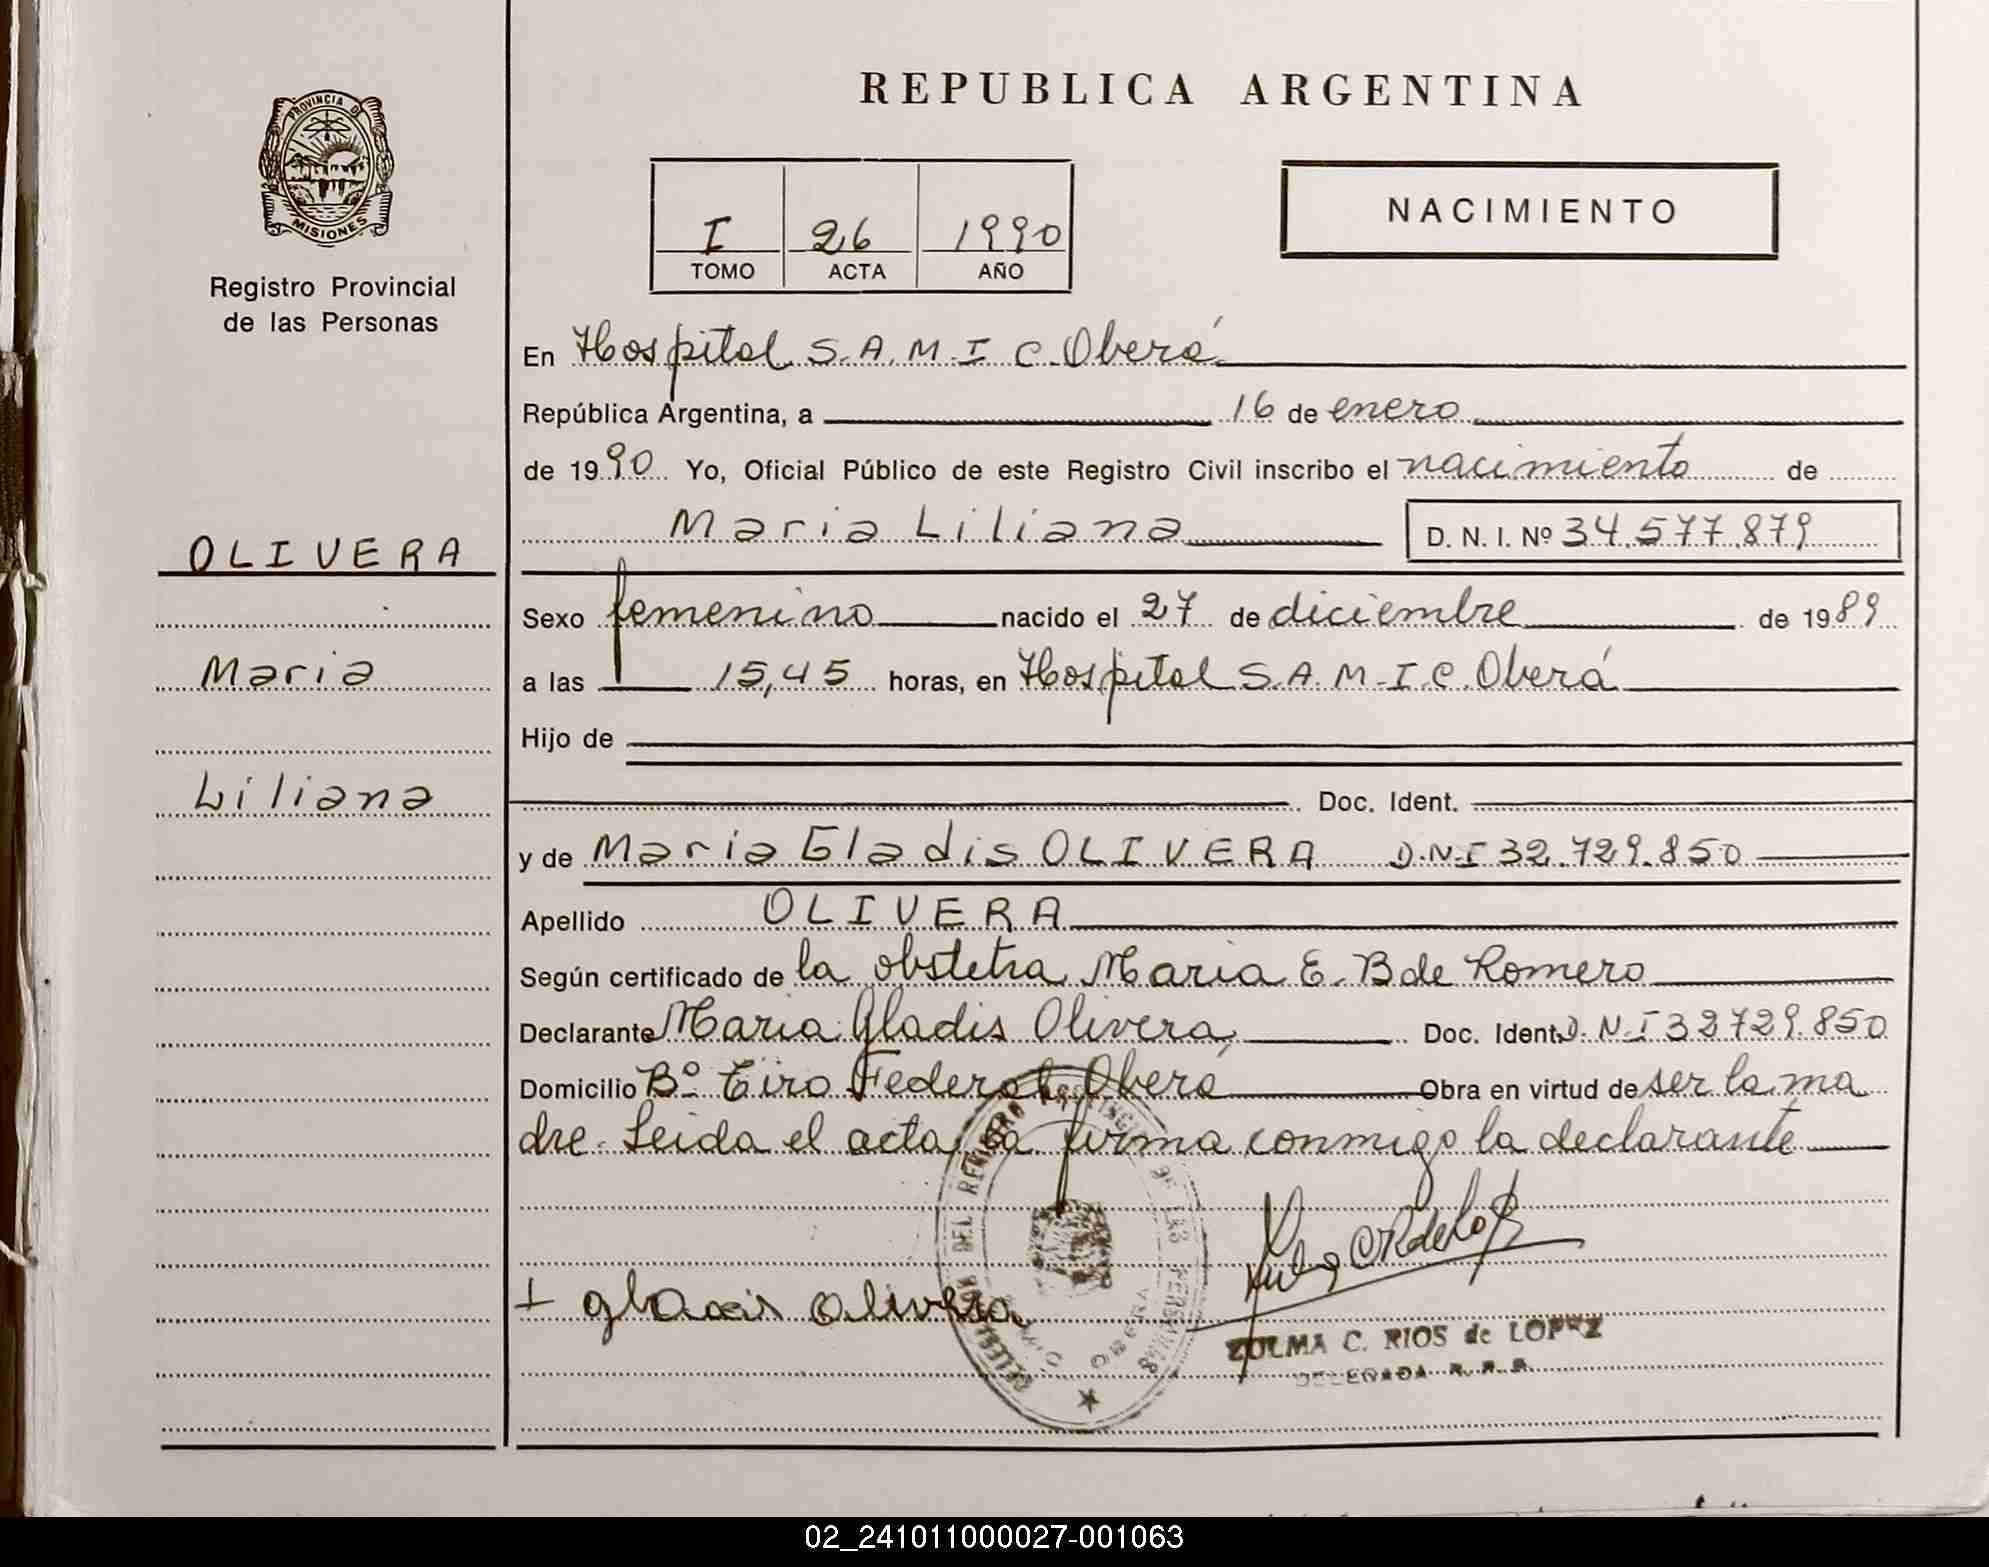 PROVINCIA DE
MISIONES
Registro Provincial
de las Personas
OLIVERA
Maria
Liliana
REPUBLICA ARGENTINA
I 26 1990
TOMO ACTA AÑO
NACIMIENTO
En Hospital S.A.M.I C. Oberá
República Argentina, a 16 de enero
de 1990 Yo, Oficial Público de este Registro Civil inscribo el nacimiento de
Maria Liliana D. N. I. Nº 34.577.879
Sexo femenino nacido el 27 de diciembre de 1989
a las 15,45 horas, en Hospital S.A.M.I.C. Oberá
Hijo de
Doc. Ident.
y de Maria Gladis OLIVERA D.N.I 32.729.850
Apellido OLIVERA
Según certificado de la obstetra Maria E. B de Romero
Declarante Maria Gladis Olivera Doc. Ident. D.N.I 32729.850
Domicilio Bº Tiro Federal Oberá Obra en virtud de ser la ma
dre. Leida el acta la firma conmigo la declarante
Olivera
ZULMA C. RIOS de LOPEZ
DELEGADA
02_241011000027-001063